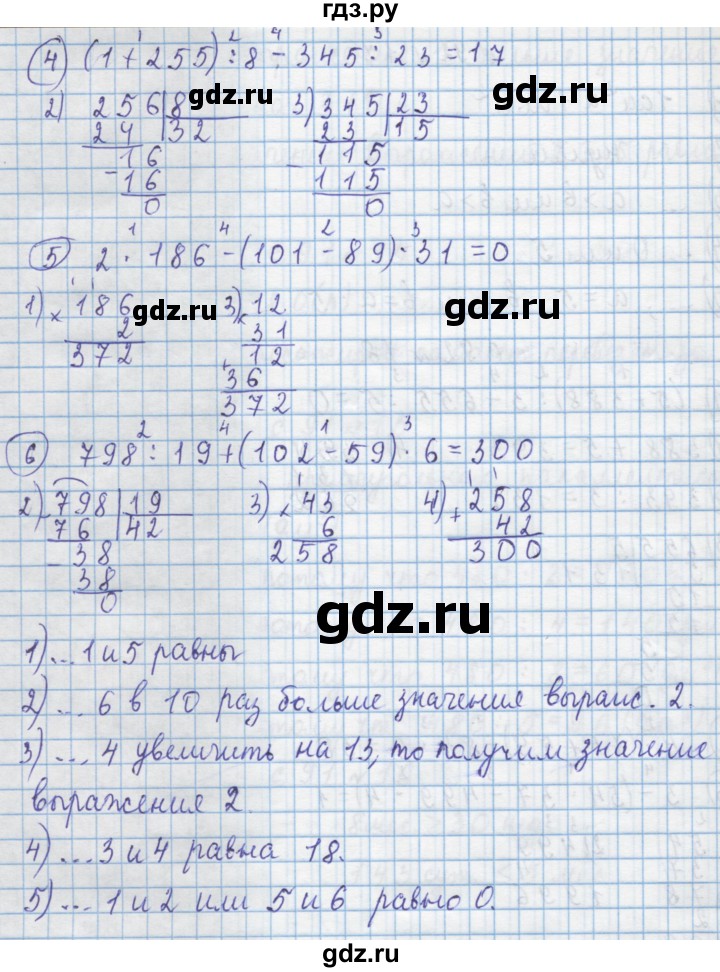 гдз.ру
1 2 4 3
4 (1+255):8-345:23=17
2) 256|8 3) 345|23
24 32 23 15
- 16 - 115
16 115
0 0
gdz.ru gdz.ru
1 4 2 3
5 2·186-(101-89)·31=0
1) × 186 3) × 12
2 31
372 12
+ 36
372
gdz.ru gdz.ru
2 4 1 3
6 798:19+(102-59)·6=300
2) 798|19 3) × 43 4) + 258
76 42 6 42
- 38 258 300
38
0
gdz.ru
1)... 1 и 5 равны
2)... 6 в 10 раз больше значения выраж. 2.
3)... 4 увеличить на 13, то получим значение
выражения 2.
4)... 3 и 4 равна 18.
5)... 1 и 2 или 5 и 6 равно 0.
gdz.ru gdz.ru
gdz.ru